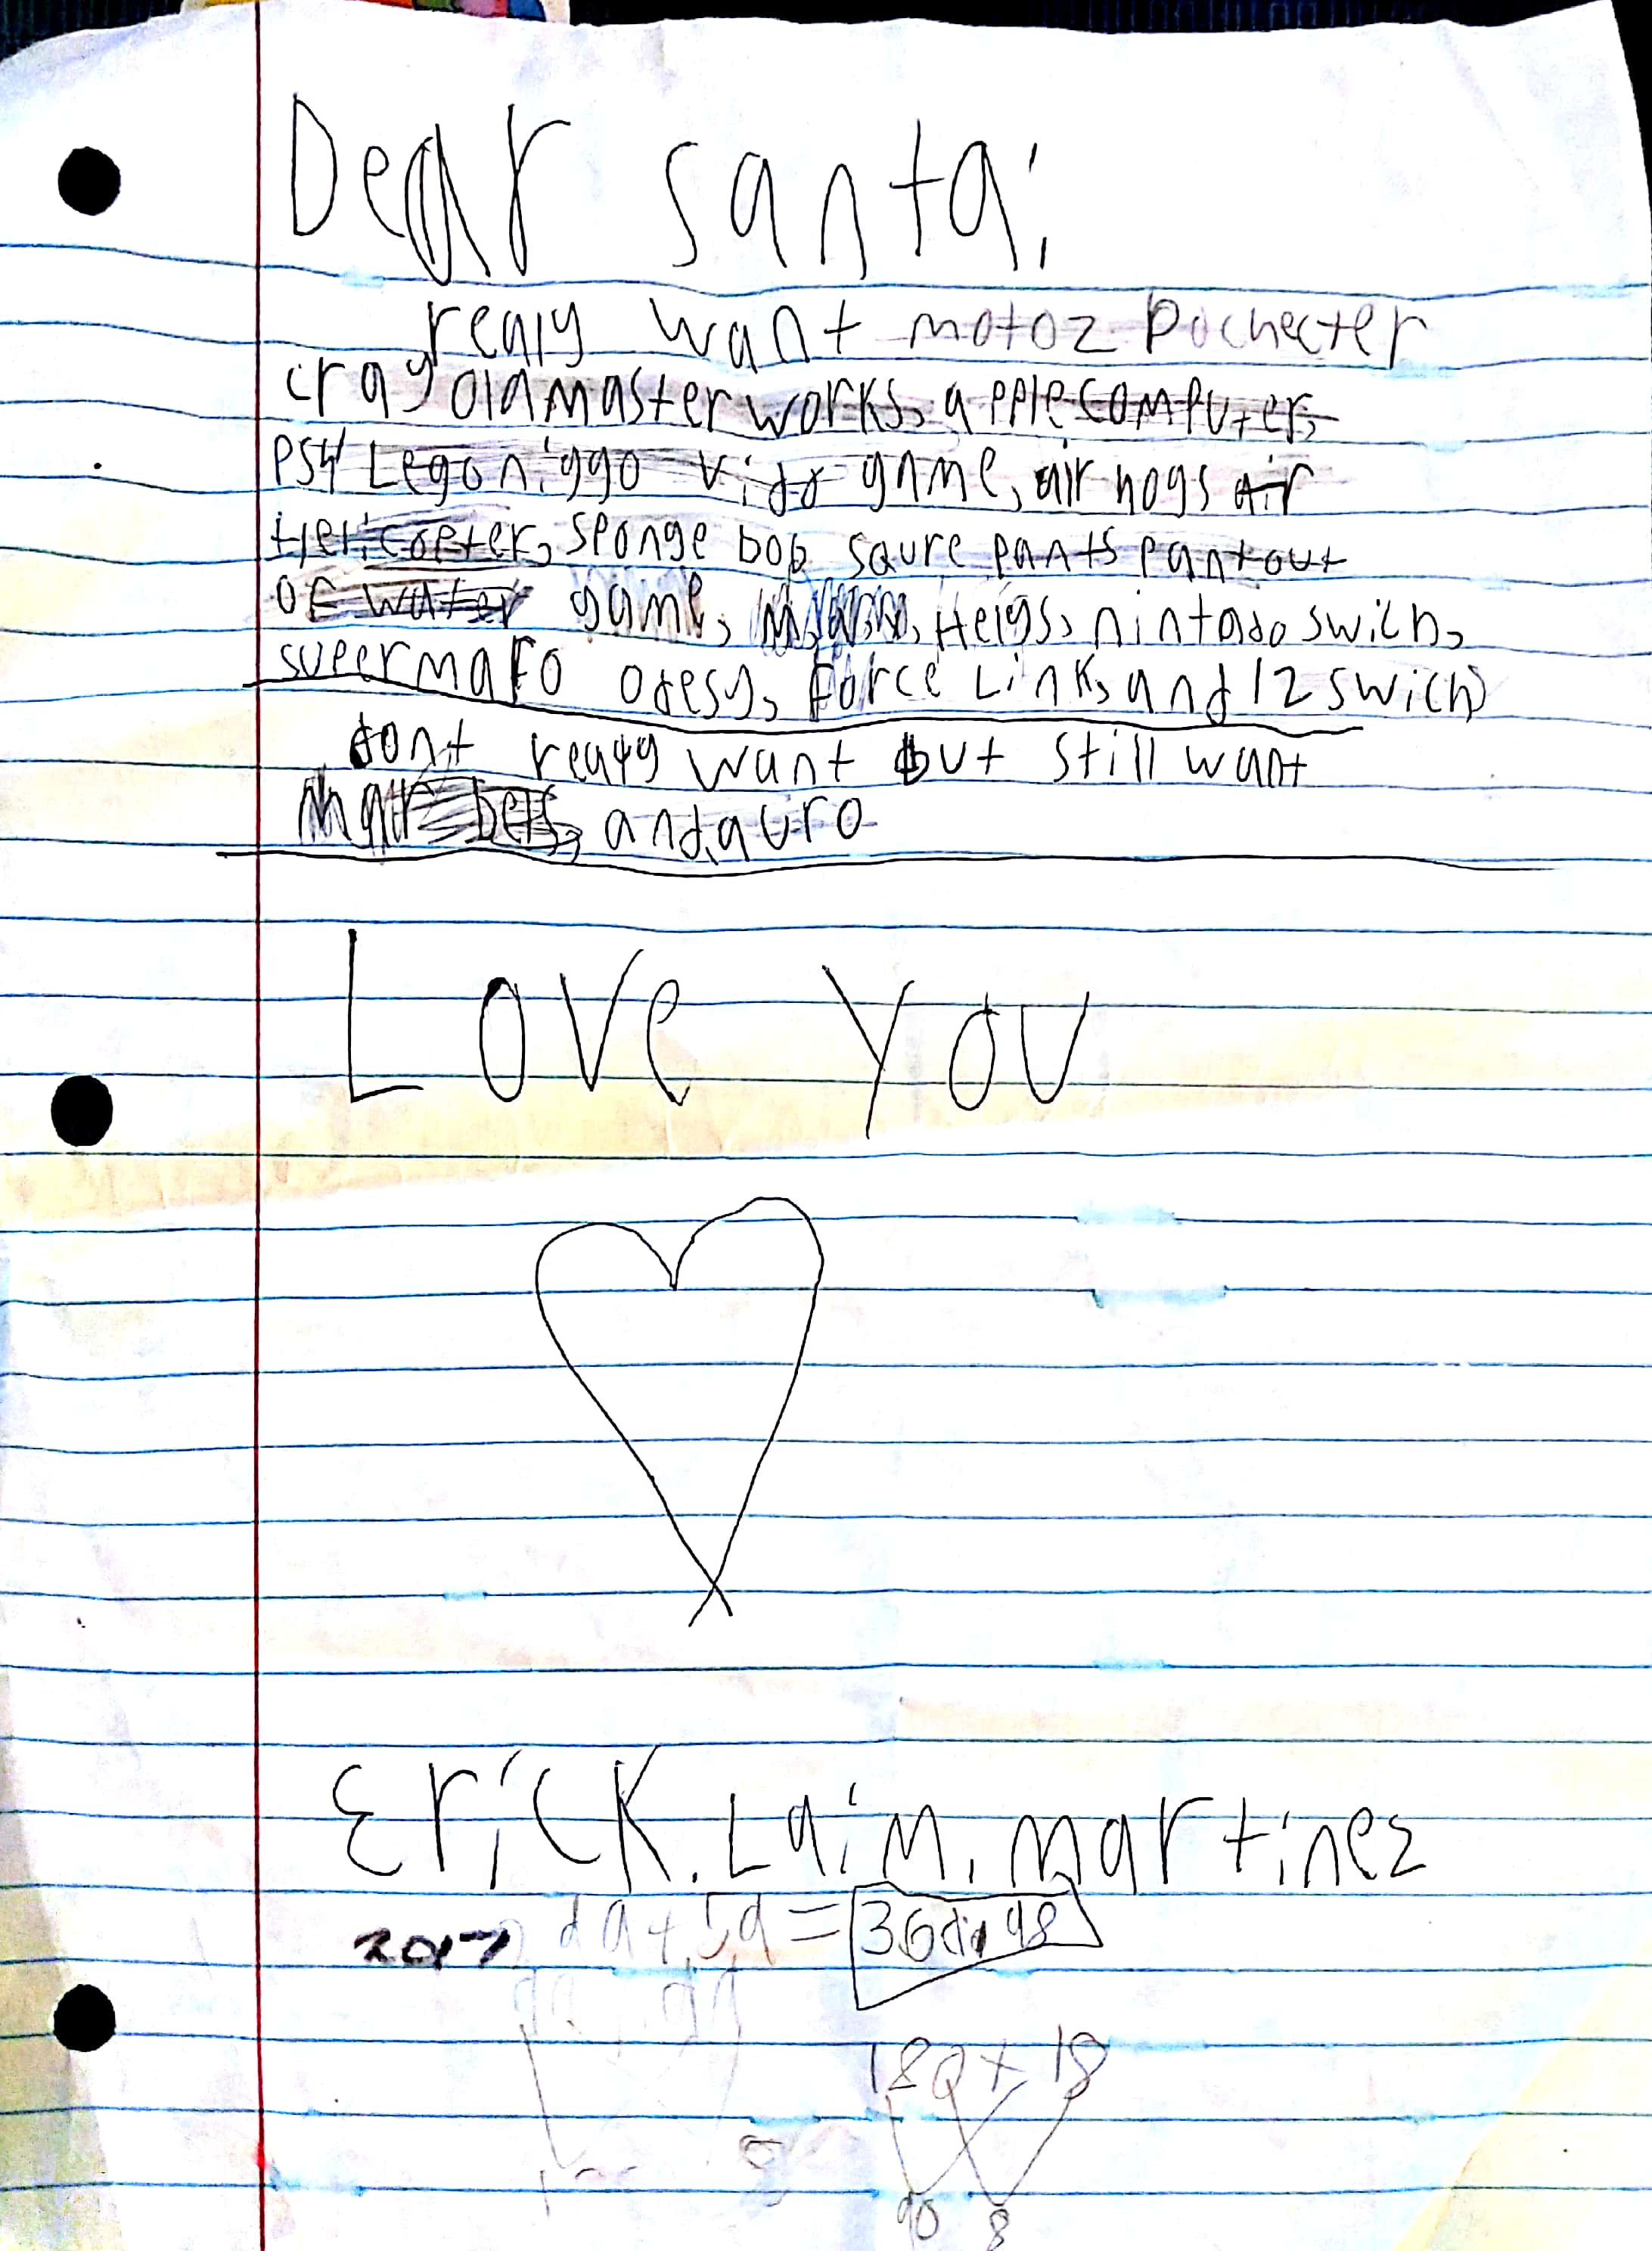 Dear santa,
realy want motoz Pochecter
crayola master works, apple computer,
PS4 Lego game, air hogs air
Hericopter, sponge bob squre pants pant out
of water game, Helgs, nintado swich,
odesy, Force Link, and 12 swich
dont realy want but still want
and, auro
Love you
Erick. Laim. martinez
2017 =
18 + 18
90 8